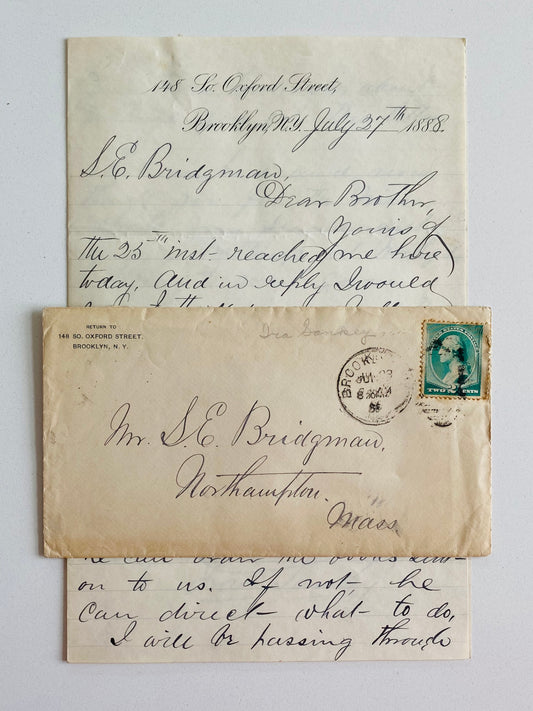 148 So. Oxford Street,
Brooklyn, N.Y. July 27th 1888.
S. E. Bridgman,
Dear Brother,
Yours of
the 25th inst- reached me here
today, And in reply I would
RETURN TO
148 SO. OXFORD STREET,
BROOKLYN, N. Y.
Ira Sankey
BROOKLYN
UNITED STATES
TWO 2 CENTS
Mr. S. E. Bridgman,
Northampton.
Mass.
he can order the books sent-
on to us. If not, he
can direct what to do.
I will be passing through